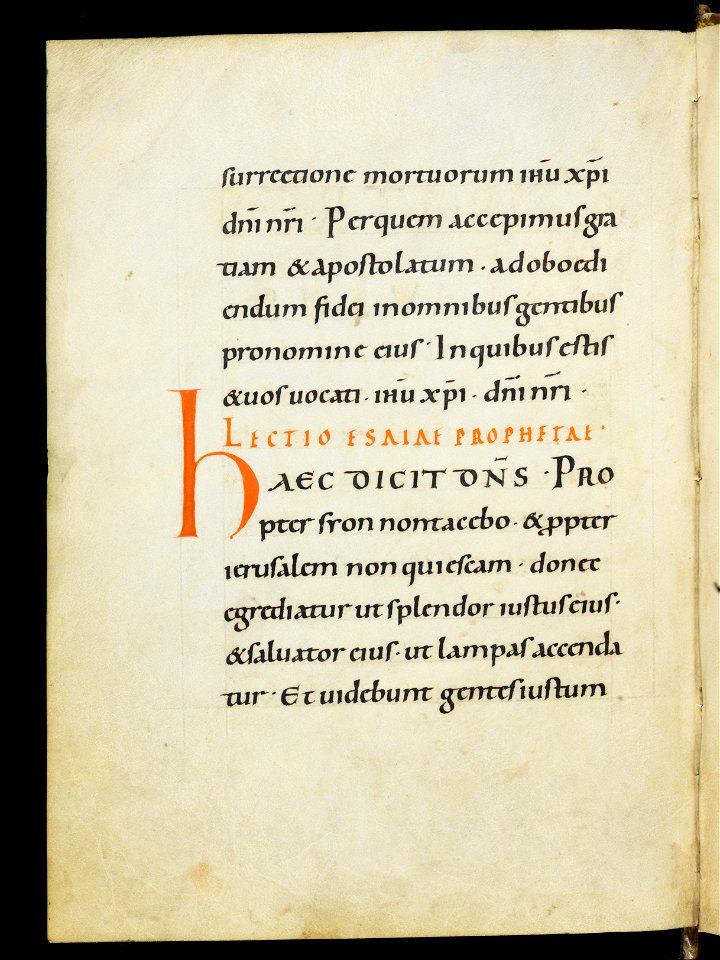 surrectione mortuorum ihū xp̄i
dn̄i nr̄i · Per quem accepimus gra
tiam & apostolatum · ad oboedi
endum fidei in omnibus gentibus
pro nomine eius · In quibus estis
& uos uocati · ihū xp̄i · dn̄i nr̄i ·
LECTIO ESAIAE PROPHETAE ·
hAEC DICIT DN̄S · PRO
pter sion non tacebo · & ꝓpter
ierusalem non quiescam · donec
egrediatur ut splendor iustus eius ·
& saluator eius · ut lampas accenda
tur · Et uidebunt gentes iustum